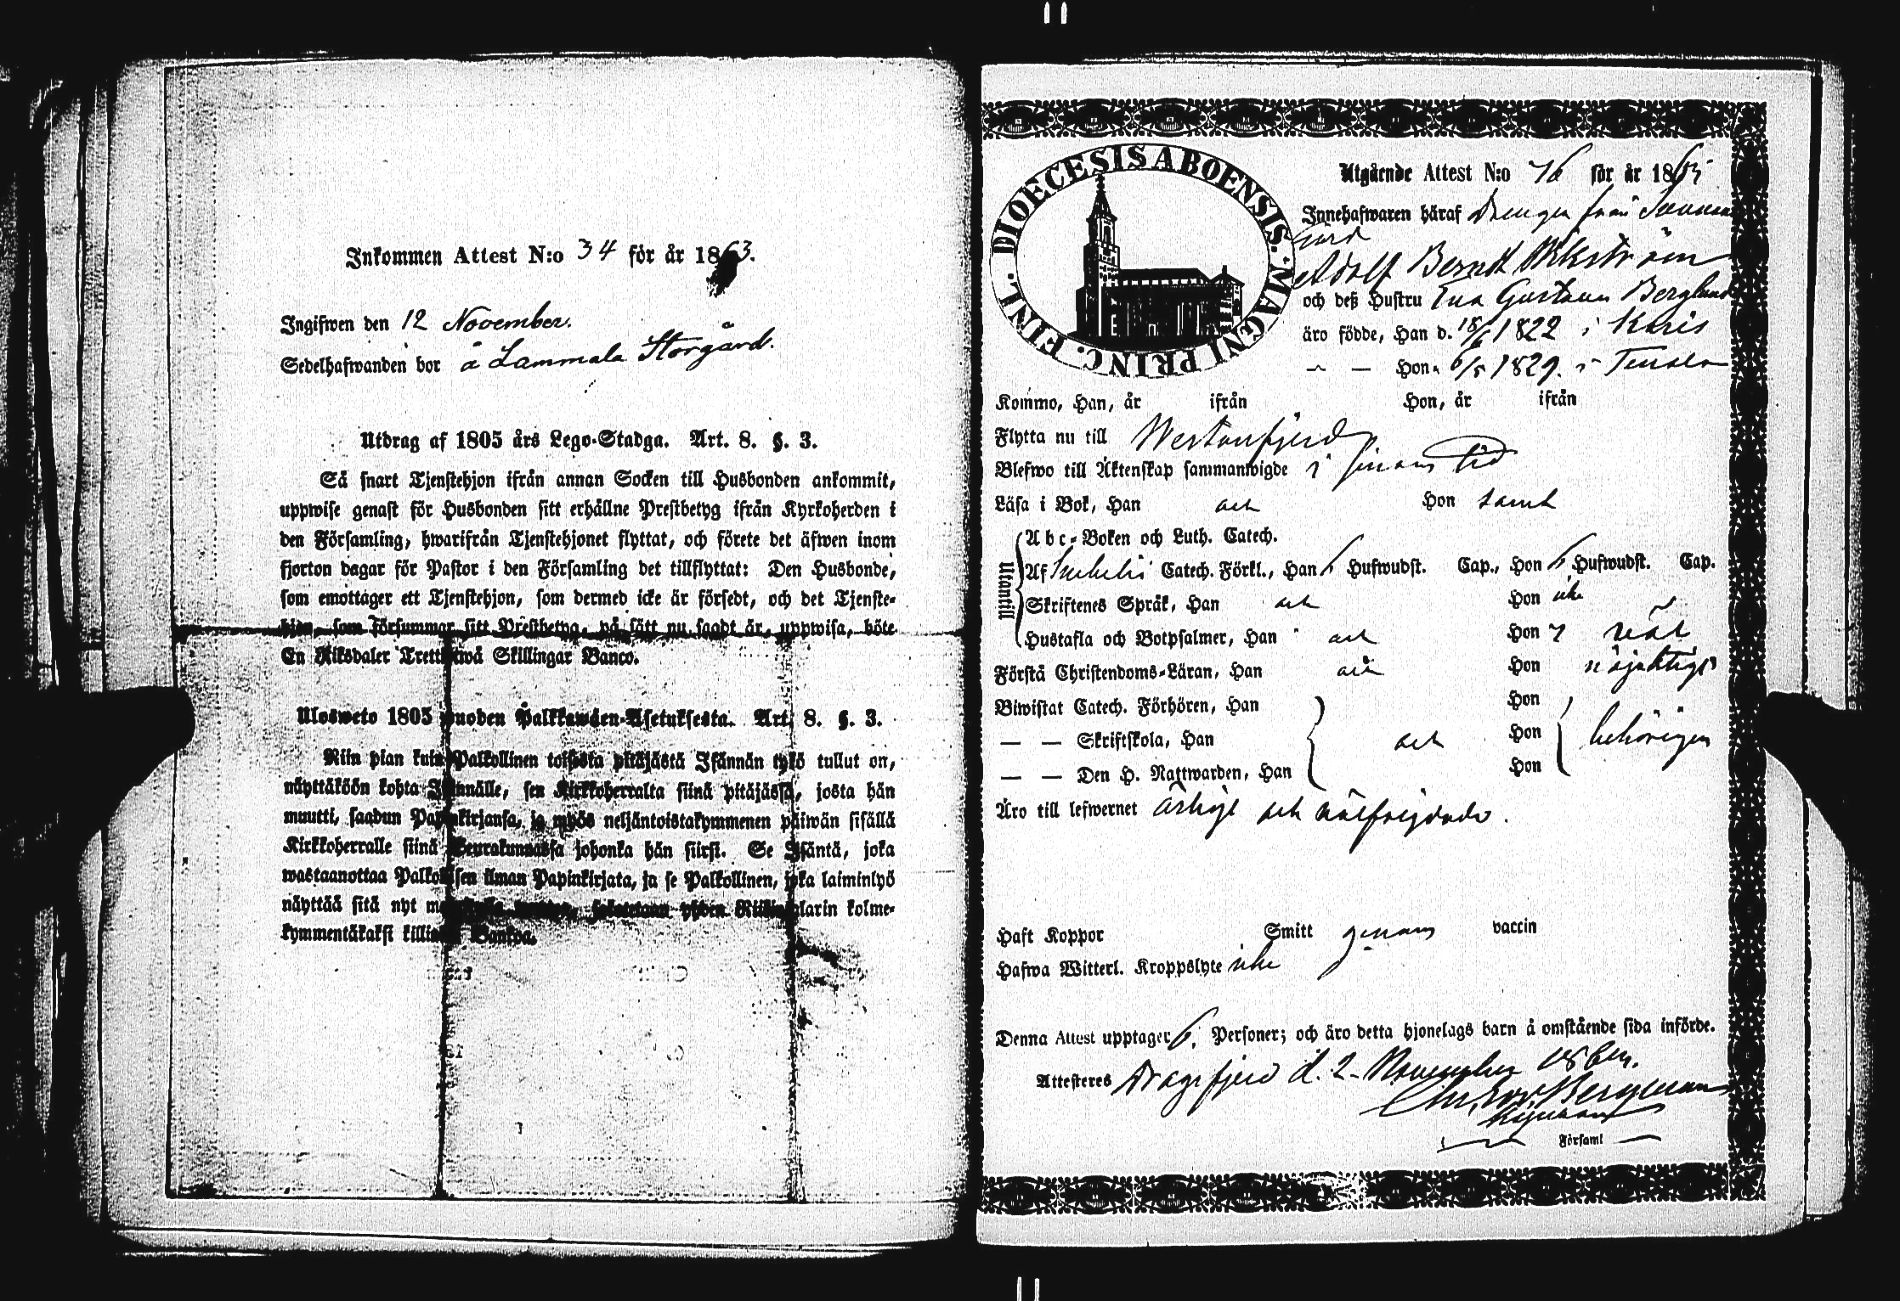 Inkommen Attest N:o 34 för år 1863.
Ingifwen den 12 November.
Sedelhafwanden bor å Lammala Storgård.
Utdrag af 1805 års Lego-Stadga. Art. 8. §. 3.
Så snart Tjenstehjon ifrån annan Socken till Husbonden ankommit,
uppwise genast för Husbonden sitt erhållne Prestbetyg ifrån Kyrkoherden i
den Församling, hwarifrån Tjenstehjonet flyttat, och förete det äfwen inom
fjorton dagar för Pastor i den Församling det tillflyttat: Den Husbonde,
som emottager ett Tjenstehjon, som dermed icke är försedt, och det Tjenste-
hjon, som försummar sitt Prestbetyg, på sätt nu sagdt är, uppwisa, böte
En Riksdaler Trettiotwå Skillingar Banco.
Ulosweto 1805 wuoden Palkkawäen-Asetuksesta. Art. 8. §. 3.
Niin pian kuin Palkollinen toisesta pitäjästä Isännän tykö tullut on,
näyttäköön kohta Isännälle, sen Kirkkoherralta siinä pitäjässä, josta hän
muutti, saadun Papinkirjansa, ja myös neljäntoistakymmenen päiwän sisällä
Kirkkoherralle siinä Seurakunnassa johonka hän siirsi. Se Isäntä, joka
wastaanottaa Palkollisen ilman Papinkirjata, ja se Palkollinen, joka laiminlyö
näyttää sitä nyt yhden Riikintalarin kolme-
kymmentäkaksi killinkiä Bankoa.
DIOECESIS ABOENSIS. MAGNI PRINC. FINL.
Utgående Attest N:o 76 för år 1863
Innehafwaren häraf Drengen från
Adolf Berndt Wikström
och deß Hustru Eva Gustava Berglund
äro födde, Han d. 18/6 1822 i Karis
— — Hon 6/5 1829. i Tenala
Kommo, Han, år ifrån Hon, år ifrån
Flytta nu till Westanfjerd
Blefwo till Äktenskap sammanwigde i sinom tid
Läsa i Bok, Han och Hon samt
Utantill
Abc-Boken och Luth. Catech.
Af Catech. Förkl., Han 6 Hufwudst. Cap., Hon 6 Hufwudst. Cap.
Skriftenes Språk, Han och Hon icke
Hustafla och Botpsalmer, Han och Hon väl
Förstå Christendoms-Läran, Han och Hon nöjaktigt
Biwistat Catech. Förhören, Han Hon
— — Skriftskola, Han och Hon behörigen
— — Den H. Nattwarden, Han Hon
Äro till lefwernet ärlige och wälfrejdade.
Haft Koppor Smitt genom vaccin
Hafwa Witterl. Kroppslyte icke
Denna Attest upptager 6. Personer; och äro detta hjonelags barn å omstående sida införde.
Attesteres Dragsfjerd d. 2 November 1863.
Bergman
Församl